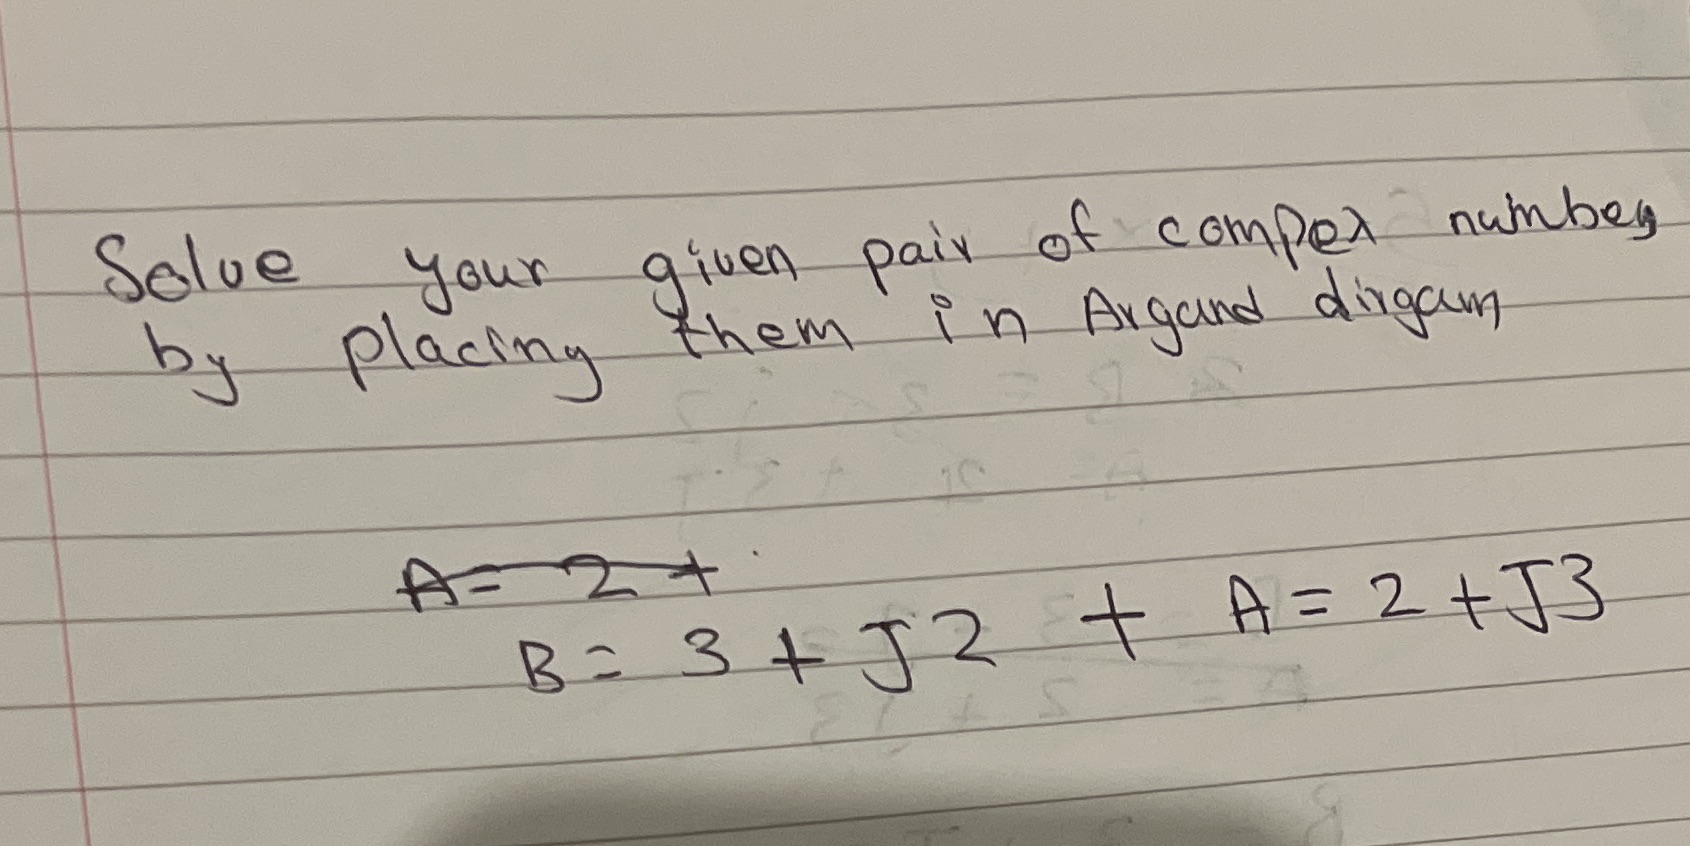 Solve your given pair of compex numbers
by placing them in Argand dirgam
A = 2 +
B = 3 + J2 + A = 2 + J3